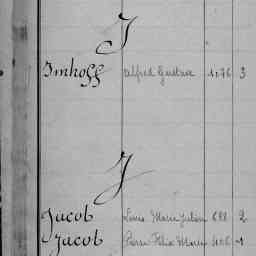 I
Imhoff Alfred Gustave 1076 3
J
Jacob Louis Marie Julien 688 2
Jacob Pierre Félix Marie 1